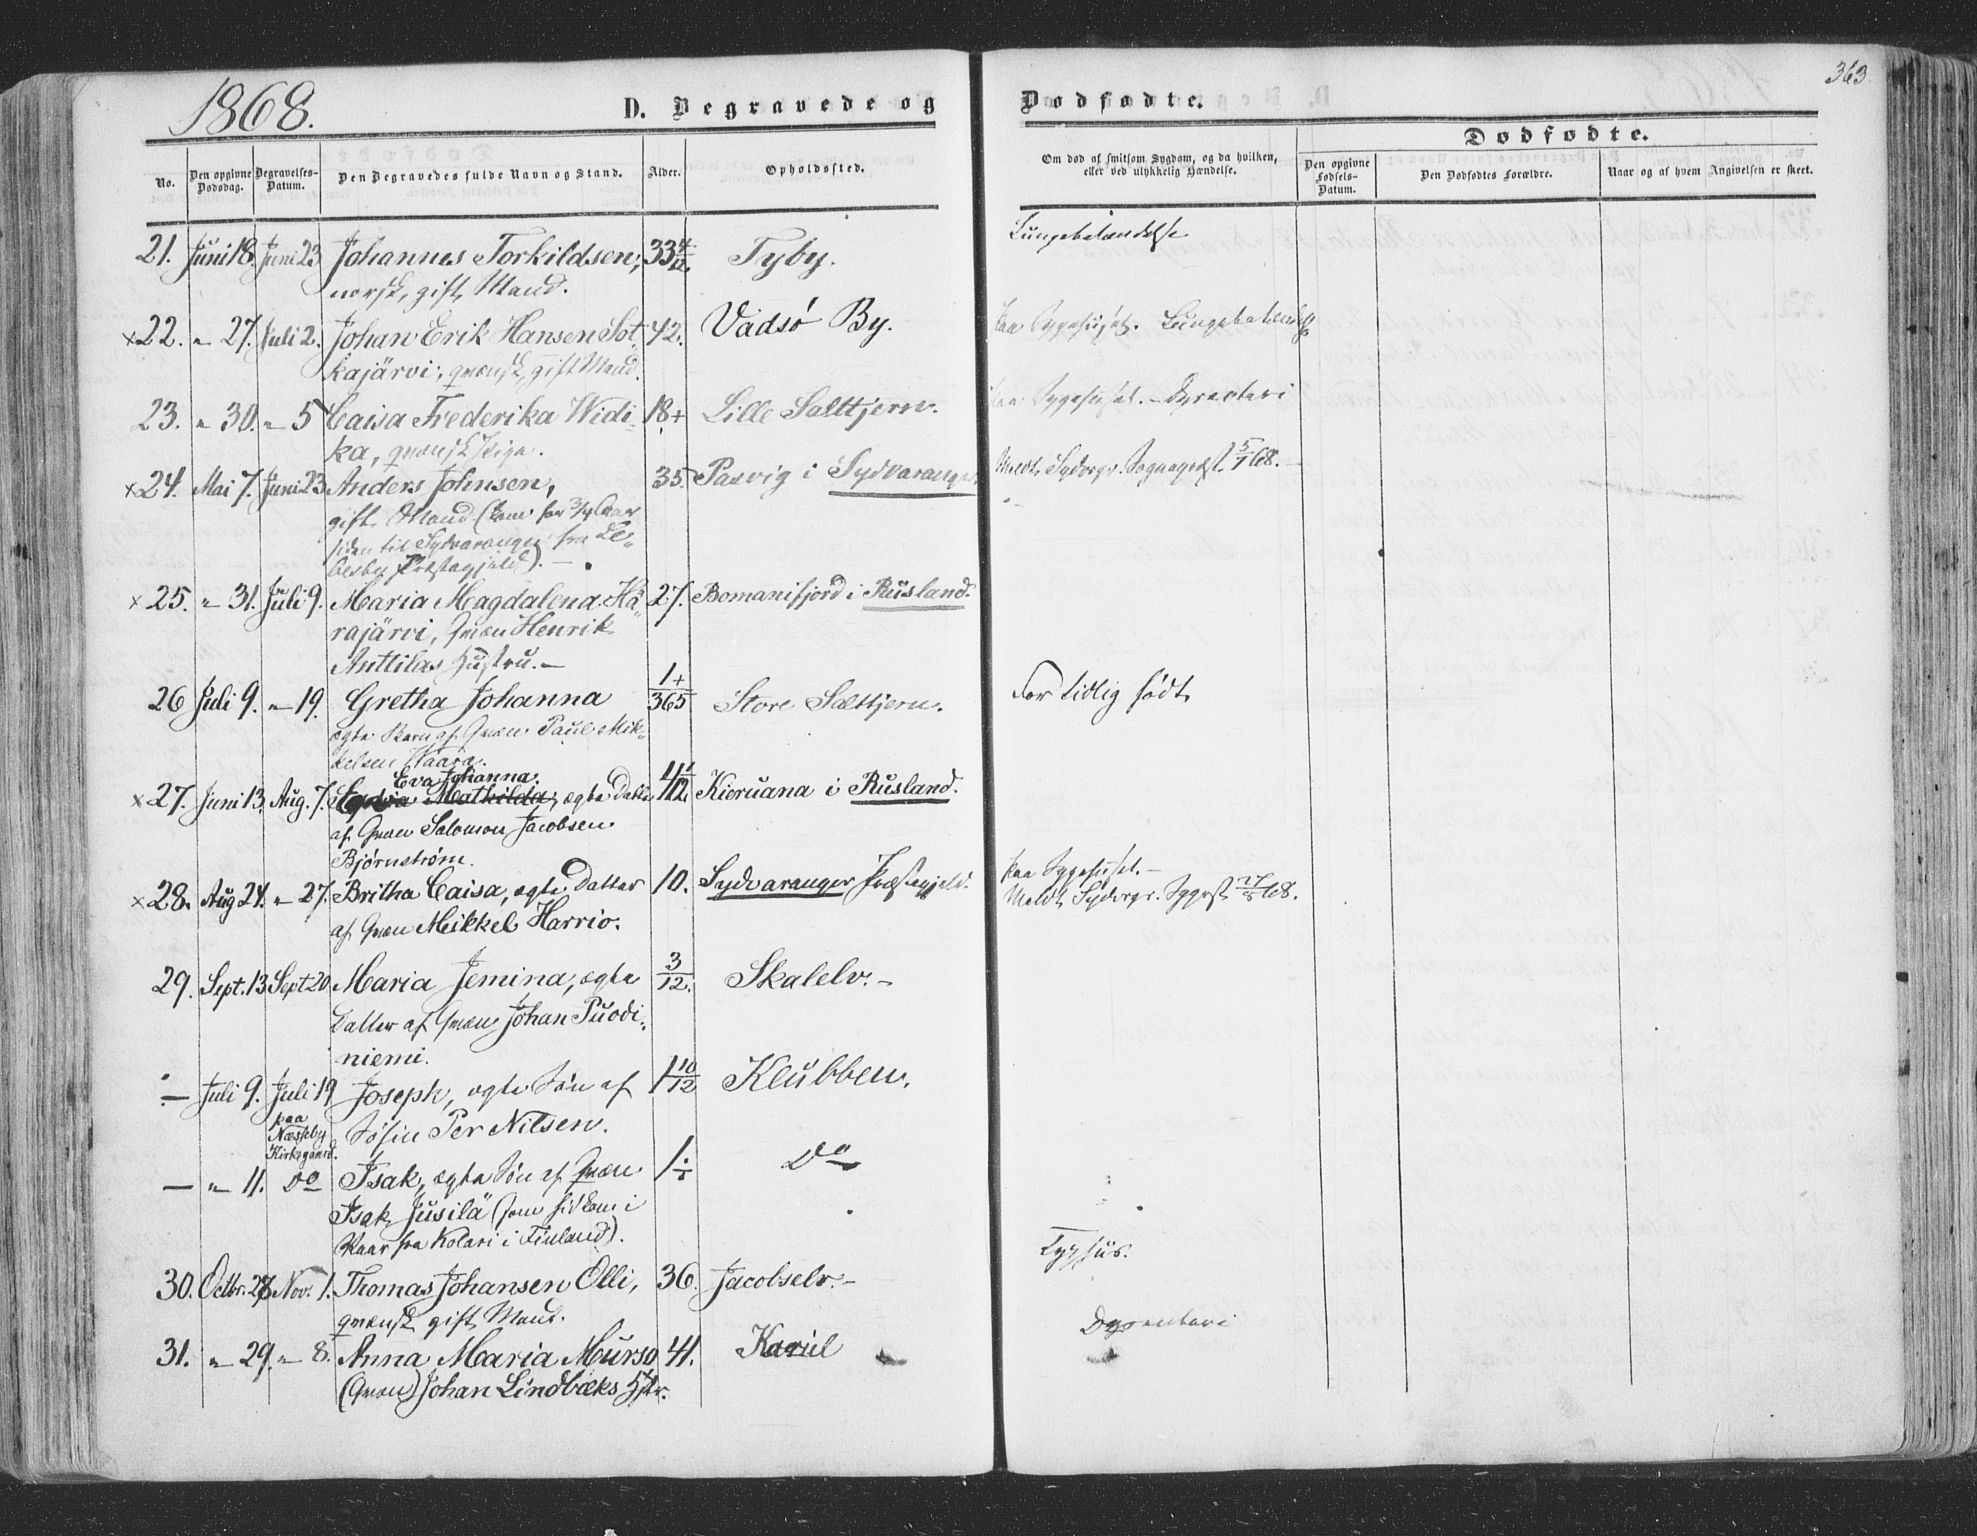 1868.
D. Begravede og
Dødfødte.
363.
No.
Den opgivne Dødsdag.
Begravelses-Datum.
Den Begravedes fulde Navn og Stand.
Alder.
Opholdssted.
Om død af smitsom Sygdom, og da hvilken,
eller ved ulykkelig Hændelse.
Dødfødte.
Den opgivne Fødsels-Datum.
Den Dødfødtes Forældre.
Naar og af hvem Angivelsen er skeet.
21. Juni 18. Juni 23 Johannes Torkildsen, 33 4/12 Tyby. Lungebetændelse
norsk, gift Mand.
×22. " 27. Juli 2. Johan Erik Hansen Sot- 42. Vadsø By. paa Sygehuset. Lungebetændelse
kajärvi, qvænsk, gift Mand.
23. " 30. " 5 Caisa Frederika Widi- 18+ Lille Salttjern. paa Sygehuset. – Dysenteri
ka, qvænsk Pige.
×24. Mai 7. Juni 23 Anders Johnsen, 35. Pasvig i Sydvaranger. Meldt Sydvgr. Sognepræst 5/7 68. –
gift Mand (kom for 3/4 Aar
siden til Sydvaranger fra Le-
besby Præstegjeld). –
×25. " 31. Juli 9. Maria Magdalena Kä- 27. Bomanifjord i Rusland.
rajärvi, Qvæn Henrik
Anttilas Hustru. –
26 Juli 9. " 19. Gretha Johanna 1+/365 Store Salttjern. For tidlig født
ægte Barn af Qvæn Paul Mik-
kelsen Waara.
Eva Johanna.
×27. Juni 13. Aug. 7. Mathilda, ægte Datter 4 1/12 Kieruana i Rusland.
af Qvæn Salomon Jacobsen
Bjørnstrøm.
×28. Aug 24. " 27. Britha Caisa, ægte Datter 10. Sydvaranger Præstegjeld. paa Sygehuset. –
af Qvæn Mikkel Harrio. Meldt Sydvrgr. Sgprst 27/8 68.
29. Sept. 13 Sept 20 Maria Jemina, ægte 3/12. Skalelv. –
Datter af Qvæn Johan Puodi-
niemi.
– Juli 9. Juli 19 Joseph, ægte Søn af 1 10/12 Klubben.
paa Næsseby Kirkegaard.
Søfin Per Nilsen.
– " 11. Do Isak, ægte Søn af Qvæn 1 Do
Isak Jusilä (som hid kom i
Vaar fra Kolari i Finland).
30. Octbr. 28 Nov. 1. Thomas Johansen Olli, 36. Jacobselv. – Typhus.
qvænsk gift Mand.
31. " 29. " 8. Anna Maria Murso 41. Kariel Dysenteri
(Qvæn) Johan Lindbæks Hstr.